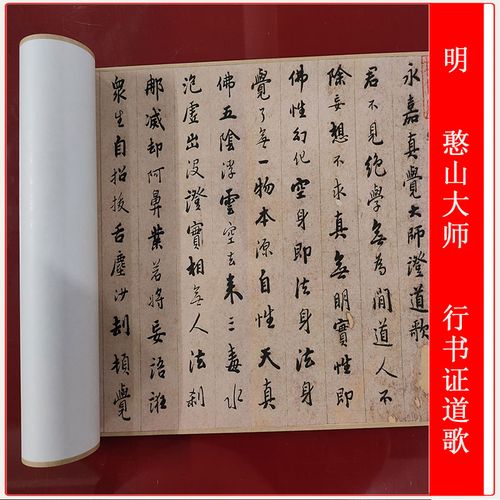 明 憨山大师 行书证道歌
永嘉真覺大師證道歌
君不見絕學無為閒道人不
除妄想不求真無明實性即
佛性幻化空身即法身法身
覺了無一物本源自性天真
佛五陰浮雲空去來三毒水
泡虛出沒證實相無人法剎
那滅却阿鼻業若將妄語誑
衆生自招拔舌塵沙劫頓覺